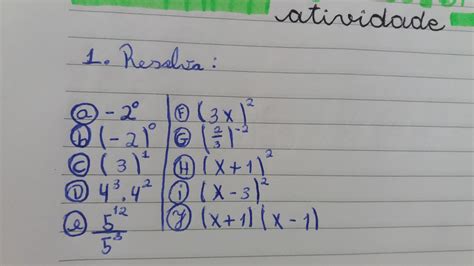 atividade
1. Resolva:
a -2⁰
b (-2)⁰
c (3)¹
D 4³ . 4²
e 5¹² / 5³
F (3x)²
G (2/3)⁻²
H (x+1)²
i (x-3)²
J (x+1)(x-1)